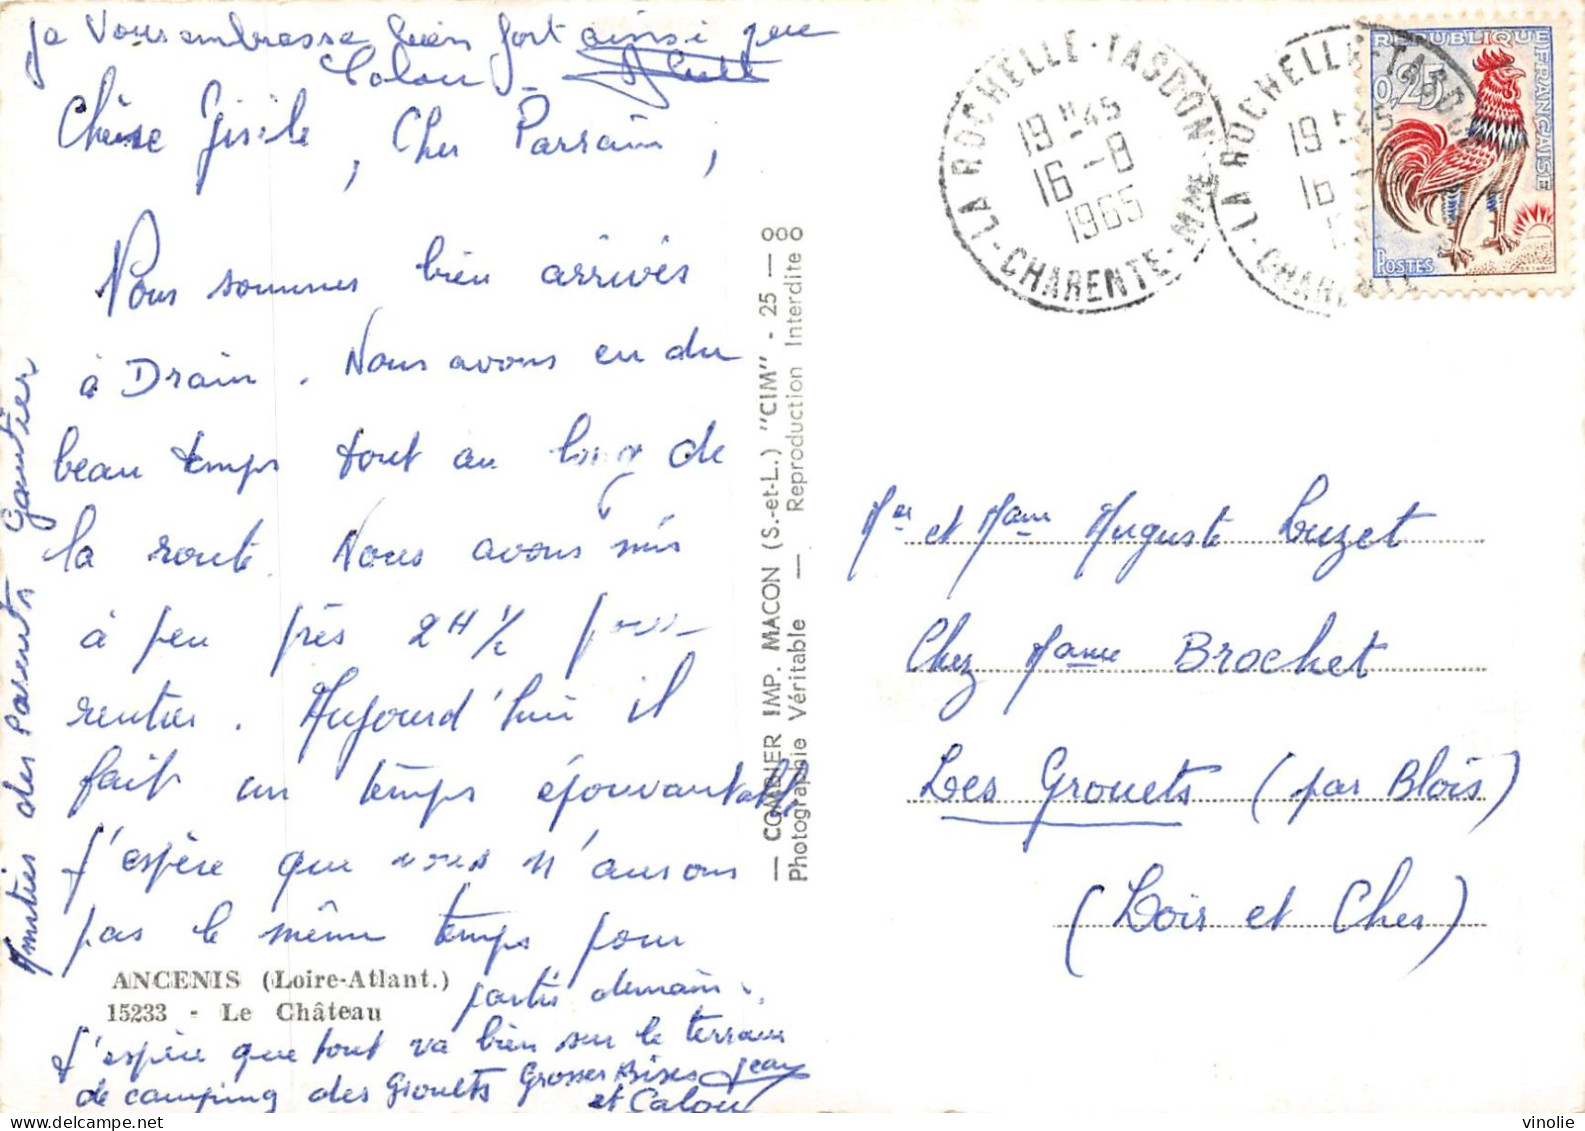 je vous embrasse bien fort ainsi que
Calou -
Chère Gisèle, Cher Parrain,
Nous sommes bien arrivés
à Drain. Nous avons eu du
beau temps tout au long de
la route. Nous avons mis
à peu près 2H 1/2 pour
rentrer. Aujourd'hui il
fait un temps épouvantable
j'espère que vous n'aurons
pas le même temps pour
partir demain.
J'espère que tout va bien sur le terrain
de camping des Grouets Grosses Bises Jean
et Calou
Amitiés des Parents Gautier
ANCENIS (Loire-Atlant.)
15233 - Le Château
— COMBIER IMP. MACON (S.-et-L.) "CIM" - 25 — ooo
Photographie Véritable — Reproduction Interdite o
LA ROCHELLE-TASDON
19H45
16-8
1965
CHARENTE-MME
LA ROCHELLE-TASDON
19H45
16
CHARENTE
REPUBLIQUE FRANÇAISE
0,25
POSTES
Mer et Mame Auguste Luzet
Chez Mame Brochet
Les Grouets (par Blois)
(Loir et Cher)
www.delcampe.net
vinolie